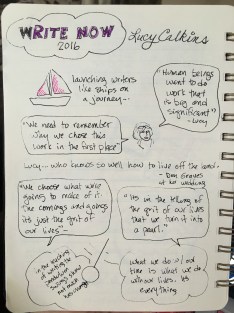 WRITE NOW
2016
Lucy Calkins
launching writers
like ships on
a journey...
Human beings
want to do
work that
is big and
significant"
- Lucy
"We need to remember
why we chose this
work in the first place"
Lucy... who knows so well how to live off the land.
- Don Graves
at her wedding
"We choose what we're
going to make of it.
The comings and goings
its just the grit of
our lives -
"Its in the telling of
the grit of our lives
that we turn it into
a pearl."
in the teaching
of writing the
pendulum
swings
and
What we do w/ our
time is what we do
with our lives. Its
everything